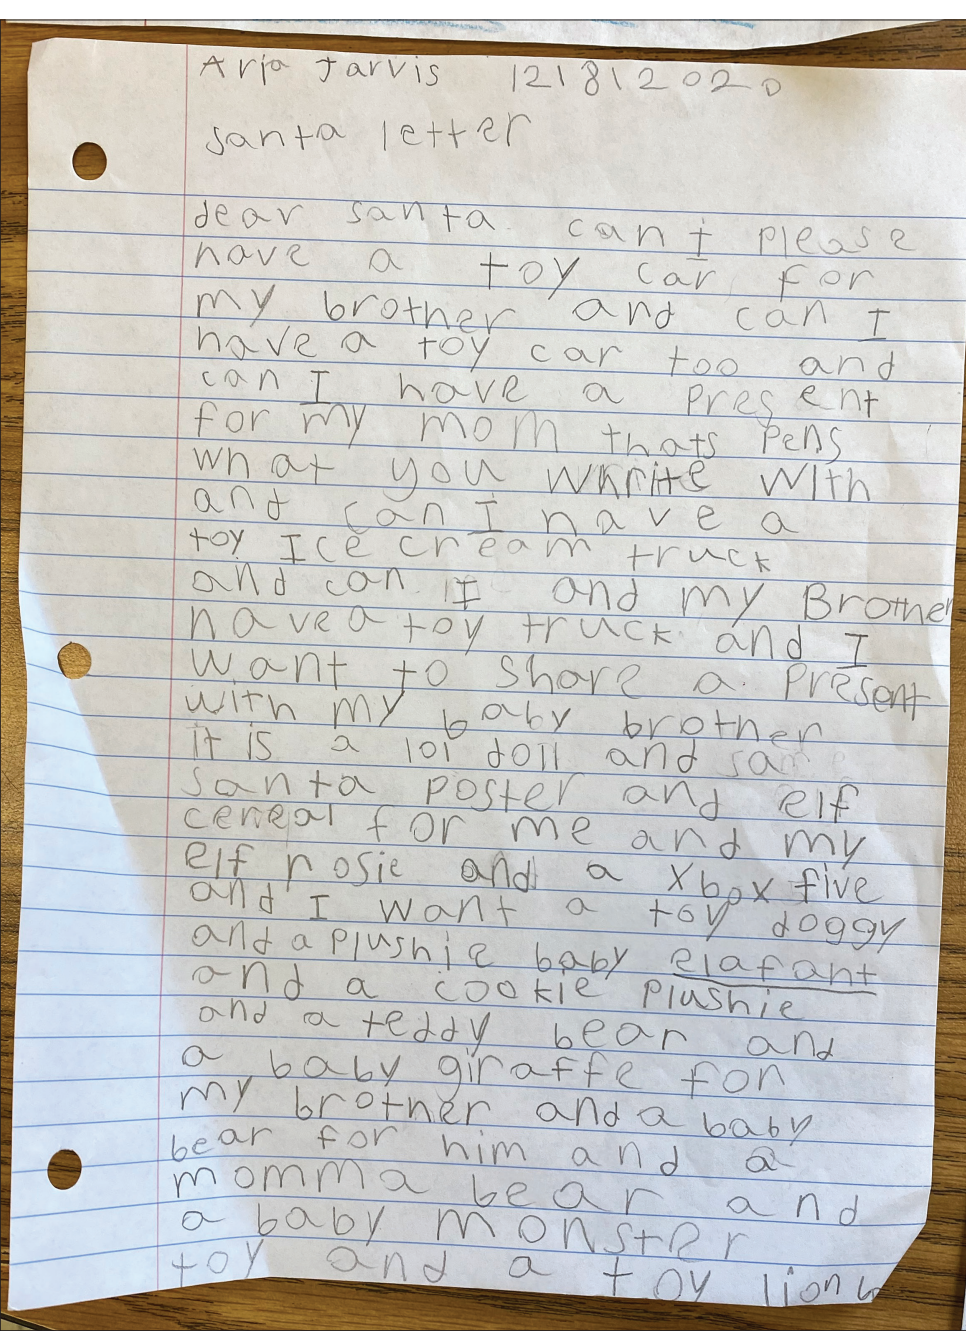 Aria Jarvis 12/8/2020
santa letter
dear santa can I please
have a toy car for
my brother and can I
have a toy car too and
can I have a present
for my mom thats pens
what you whrite with
and can I have a
toy Ice cream truck
and can I and my Brother
have a toy truck and I
want to share a present
with my baby brother
it is a lol doll and
santa poster and elf
cereal for me and my
elf rosie and a xbox five
and I want a toy doggy
and a plushie baby elafant
and a cookie plushie
and a teddy bear and
a baby giraffe for
my brother and a baby
bear for him and a
momma bear and
a baby monster
toy and a toy lion